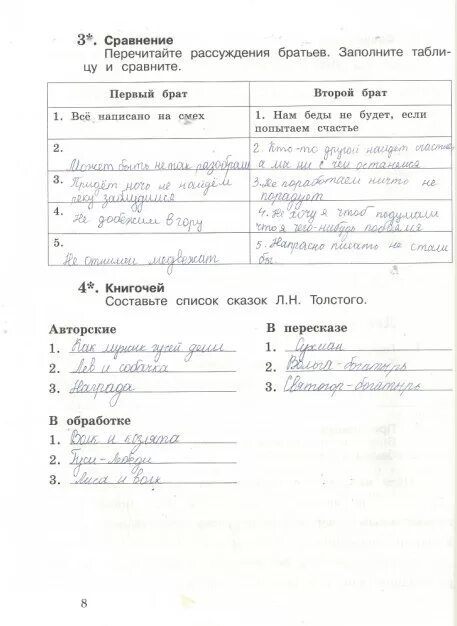 3*. Сравнение
Перечитайте рассуждения братьев. Заполните табли-
цу и сравните.
Первый брат
Второй брат
1. Всё написано на смех
1. Нам беды не будет, если
попытаем счастье
2.
Может быть не так разобрали
2. Кто-то другой найдёт счастье,
а мы ни с чем останемся
3. Придёт ночь не найдём
реку заблудимся
3. Не поработаем ничто не
порадует
4.
Не добежим в гору
4. Не хочу я чтоб подумали
что я чего-нибудь
5.
Не отнимем медвежат
5. Напрасно писать не стали
бы
4*. Книгочей
Составьте список сказок Л.Н. Толстого.
Авторские
1. Как мужик гусей делил
2. Лев и собачка
3. Награда
В пересказе
1. Сухман
2. Вольга-богатырь
3. Святогор-богатырь
В обработке
1. Волк и козлята
2. Гуси-лебеди
3. Лиса и волк
8